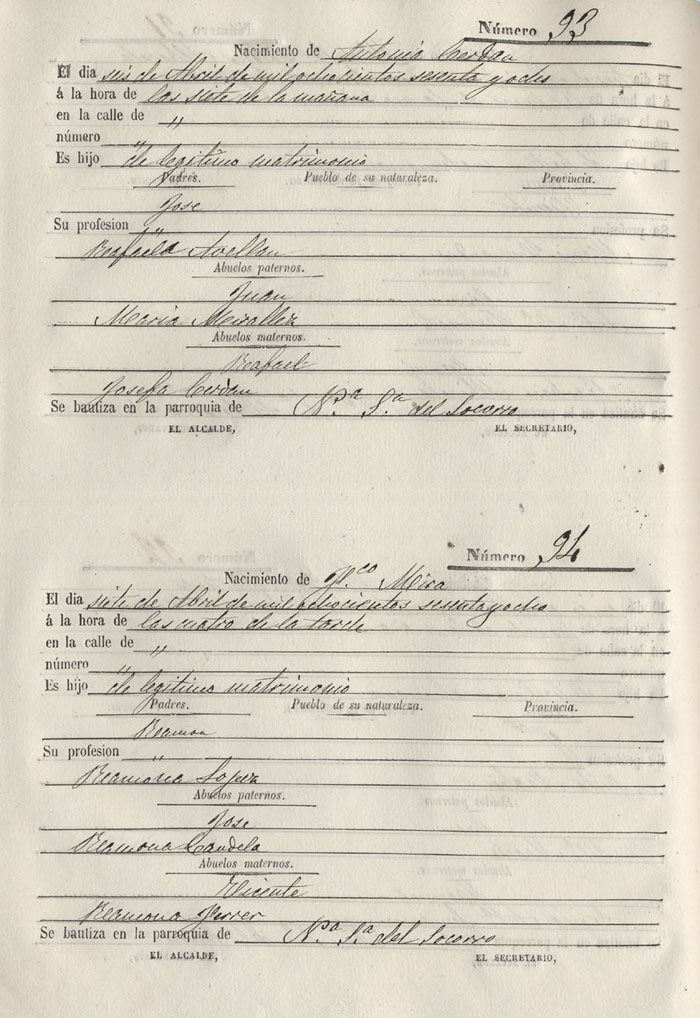 Número 93
Nacimiento de Antonia Cerdan
El dia seis de Abril de mil ochocientos sesenta y ocho
á la hora de las siete de la mañana
en la calle de "
número "
Es hijo de legitimo matrimonio
Padres. Pueblo de su naturaleza. Provincia.
Jose
Su profesion "
Rafaela Avellan
Abuelos paternos.
Juan
Maria Mirallez
Abuelos maternos.
Rafael
Josefa Cerdan
Se bautiza en la parroquia de N.ª S.ª del Socorro
EL ALCALDE, EL SECRETARIO,
Número 94
Nacimiento de Fr.co Mira
El dia siete de Abril de mil ochocientos sesenta y ocho
á la hora de las cuatro de la tarde
en la calle de "
número "
Es hijo de legitimo matrimonio
Padres. Pueblo de su naturaleza. Provincia.
Ramon
Su profesion "
Ramona Lopez
Abuelos paternos.
Jose
Ramona Candela
Abuelos maternos.
Vicente
Ramona Ferrer
Se bautiza en la parroquia de N.ª S.ª del Socorro
EL ALCALDE, EL SECRETARIO,